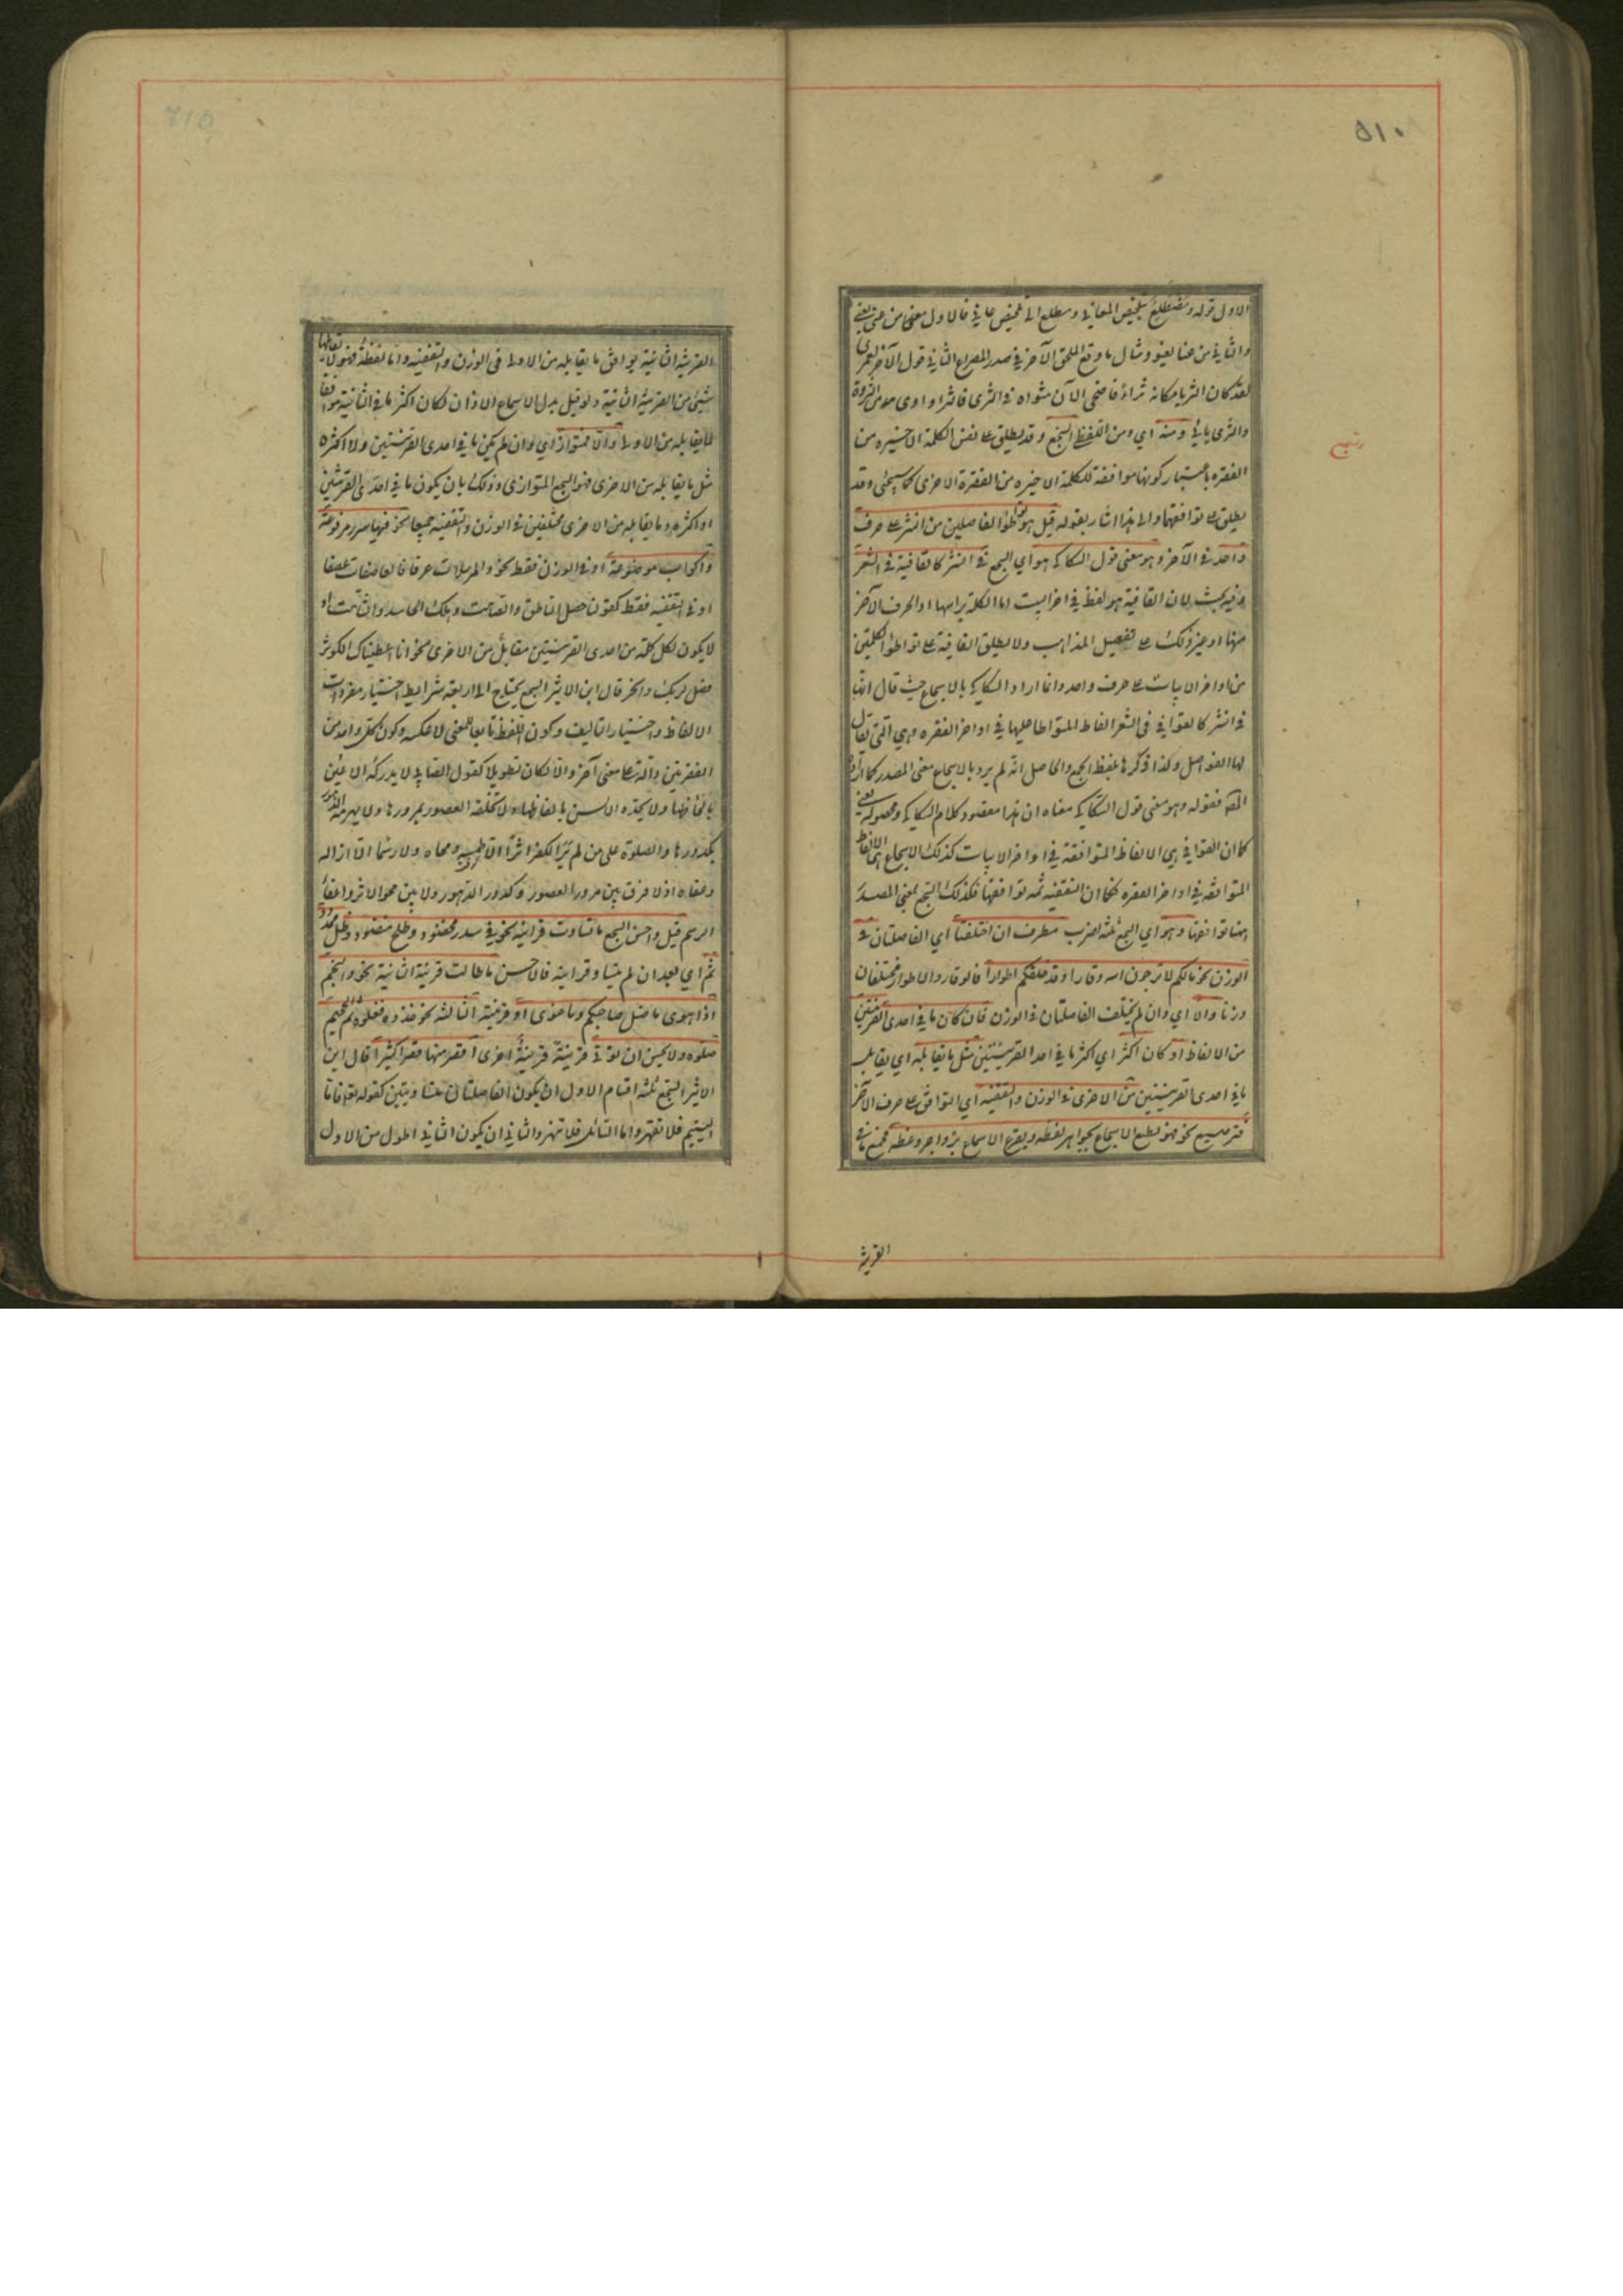 ٥١٠
الاول قوله ومضطلع بتلخيص المعاني ومطلع الى تخليص عاني فالاول معنى من عنى يعني
والثاني من عنا يعنو ومثال ما وقع الملحق الآخر في صدر المصراع الثاني قول الآخر لعمري
لقد كان الثريا مكانه ثراء فاضحى الآن مثواه في الثرى فاثرا واوى من الثروة
والثرى يائي ومنه اي ومن اللفظي السجع وقد يطلق على نفس الكلمة الاخيره من
الفقره باعتبار كونها موافقة للكلمة الاخيره من الفقرة الاخرى كما سيجئ وقد
يطلق على توافقهما والى هذا اشار بقوله قيل هو تواطؤ الفاصلين من النثر على حرف
واحد في الآخر وهو معنى قول السكاكي هو اي السجع في النثر كالقافية في الشعر
وفيه بحث لان القافية هو لفظ في اخر البيت اما الكلمة براسها او الحرف الآخر
منها او غير ذلك على تفصيل المذاهب ولا يطلق القافية على تواطؤ الكلمتين
من اواخر الابيات على حرف واحد وانما اراد السكاكي بالاسجاع حيث قال انها
في النثر كالقوافي في الشعر الفاظ المتواطا عليها في اواخر الفقره وهي التي يقال
لها الفواصل وكذا ذكرها بلفظ الجمع والحاصل انه لم يرد بالاسجاع معنى المصدر كما اراده
المص فقوله وهو معنى قول السكاكي معناه ان هذا مقصود كلام السكاكي ومحصوله يعني
كما ان القوافي هي الالفاظ المتوافقة في اواخر الابيات كذلك الاسجاع هي الالفاظ
المتوافقه في اواخر الفقره فكما ان التقفيه ثمه توافقها فكذلك السجع بمعنى المصدر
هنا توافقها وهو اي السجع ثلثه اضرب مطرف ان اختلفتا اي الفاصلتان في
الوزن نحو مالكم لا ترجون لله وقارا وقد خلقكم اطوارا فالوقار والاطوار مختلفان
وزنا والا اي وان لم يختلف الفاصلتان في الوزن فان كان ما في احدى القرينتين
من الالفاظ او كان اكثر اي اكثر ما في احد القرينتين مثل ما يقابله اي يقابل
ما في احدى القرينتين من الاخرى في الوزن والتقفيه اي التوافق على حرف الآخر
فترصيع نحو فهو يطبع الاسجاع بجواهر لفظه ويقرع الاسماع بزواجر وعظه فجميع ما في
القرينة
القرينة الثانية يوافق ما يقابله من الاولى في الوزن والتقفيه واما لفظة فهو لا يقابلها
شيئ من القرينة الثانية ولو قيل بدل الاسماع الاذان لكان اكثر ما في الثانية موافقا
لما يقابله من الاولى والا فمتواز اي وان لم يكن ما في احدى القرينتين ولا اكثره
مثل ما يقابله من الاخرى فهو السجع المتوازى وذلك بان يكون ما في احدى القرينتين
او اكثره وما يقابله من الاخرى مختلفين في الوزن والتقفيه جميعا نحو فيها سرر مرفوعة
واكواب موضوعة او في الوزن فقط نحو والمرسلات عرفا فالعاصفات عصفا
او في التقفيه فقط كقولنا حصل الناطق والصامت وهلك الحاسد والشامت او
لا يكون لكل كلمة من احدى القرينتين مقابل من الاخرى نحو انا اعطيناك الكوثر
فصل لربك وانحر قال ابن الاثير السجع يحتاج الى اربعة شرايط اختيار مفردات
الالفاظ واختيار التاليف وكون اللفظ تابعا للمعنى لا عكسه وكون كل واحد من
الفقرتين دالة على معنى آخر والا لكان تطويلا كقول الصابي لا يدركه الاعين
بالحاظها ولا يحده الالسن بالفاظها ولا تخلقه العصور بمرورها ولا يهرمه الدهور
بكدورها والصلوة على من لم ير للكفر اثرا الا طمسه ومحاه ولا رسما الا ازاله
وعفاه اذ لا فرق بين مرور العصور وكدور الدهور ولا بين محو الاثر واعفاء
الرسم قيل واحسن السجع ما تساوت قراينه نحو في سدر مخضود وطلح منضود وظل ممدود
ثم اي بعد ان لم يتساو قراينه فالاحسن ما طالت قرينته الثانية نحو والنجم
اذا هوى ما ضل صاحبكم وما غوى او قرينته الثالثه نحو خذوه فغلوه ثم الجحيم
صلوه ولا يحسن ان يؤتى قرينة قرينة اخرى اقصر منها قصرا كثيرا قال ابن
الاثير السجع ثلثه اقسام الاول ان يكون الفاصلتان متساويتين كقوله تع فاما
اليتيم فلا تقهر واما السائل فلا تنهر والثاني ان يكون الثاني اطول من الاول